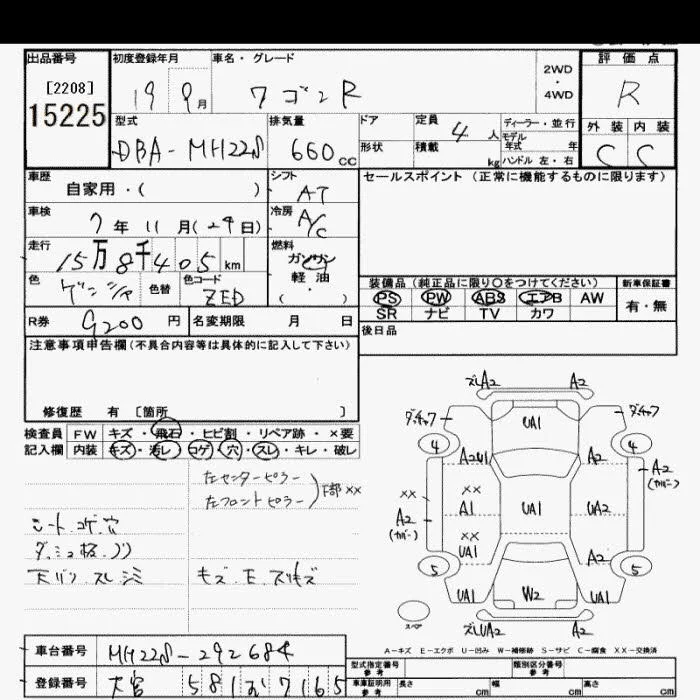 出品番号
[2208]
15225
初度登録年月
19 9月
車名・グレード
ワゴンR
2WD
・
4WD
評価点
R
外装 内装
C C
型式
DBA-MH22S
排気量
660 CC
ドア
形状
定員
4 人
積載
kg
ディーラー・並行
モデル
年式 年
ハンドル 左・右
車歴
自家用・( )
シフト
AT
セールスポイント (正常に機能するものに限ります)
車検
7年 11月(24日)
冷房
A/C
走行
15万8千405km
燃料
ガソリン
軽油
・( )
色
色替
色コード
ZED
装備品(純正品に限り○をつけてください)
PS PW ABS エアB AW
SR ナビ TV カワ
新車保証書
有・無
R券
9200円
名変期限 月 日
後日品
注意事項申告欄(不具合内容等は具体的に記入して下さい)
修復歴 有 [箇所 ]
検査員
記入欄
FW キズ・飛石・ヒビ割・リペア跡・×要
内装 キズ・汚レ・コゲ・穴・スレ・キレ・破レ
左センターピラー
左フロントピラー
下部××
シート コゲ穴
キズ・E・スリキズ
ズレA2 A2
ダ.チャク ダ.チャク
UA1
4 4
A2U1 A2
A2
(カバー)
××
A1
UA1
UA2
A2
(カバー)
××
UA1
A2
5 5
UA1 W2 UA1
スペア
ズレUA2 A2
A-キズ E-エクボ U-凹み W-補修跡 S-サビ C-腐食 XX-交換済
車台番号
MH22S-292684
登録番号
581 7165
型式指定番号
参考
類別区分番号
参考
車庫証明用
参考
長さ cm
幅 cm
高さ cm